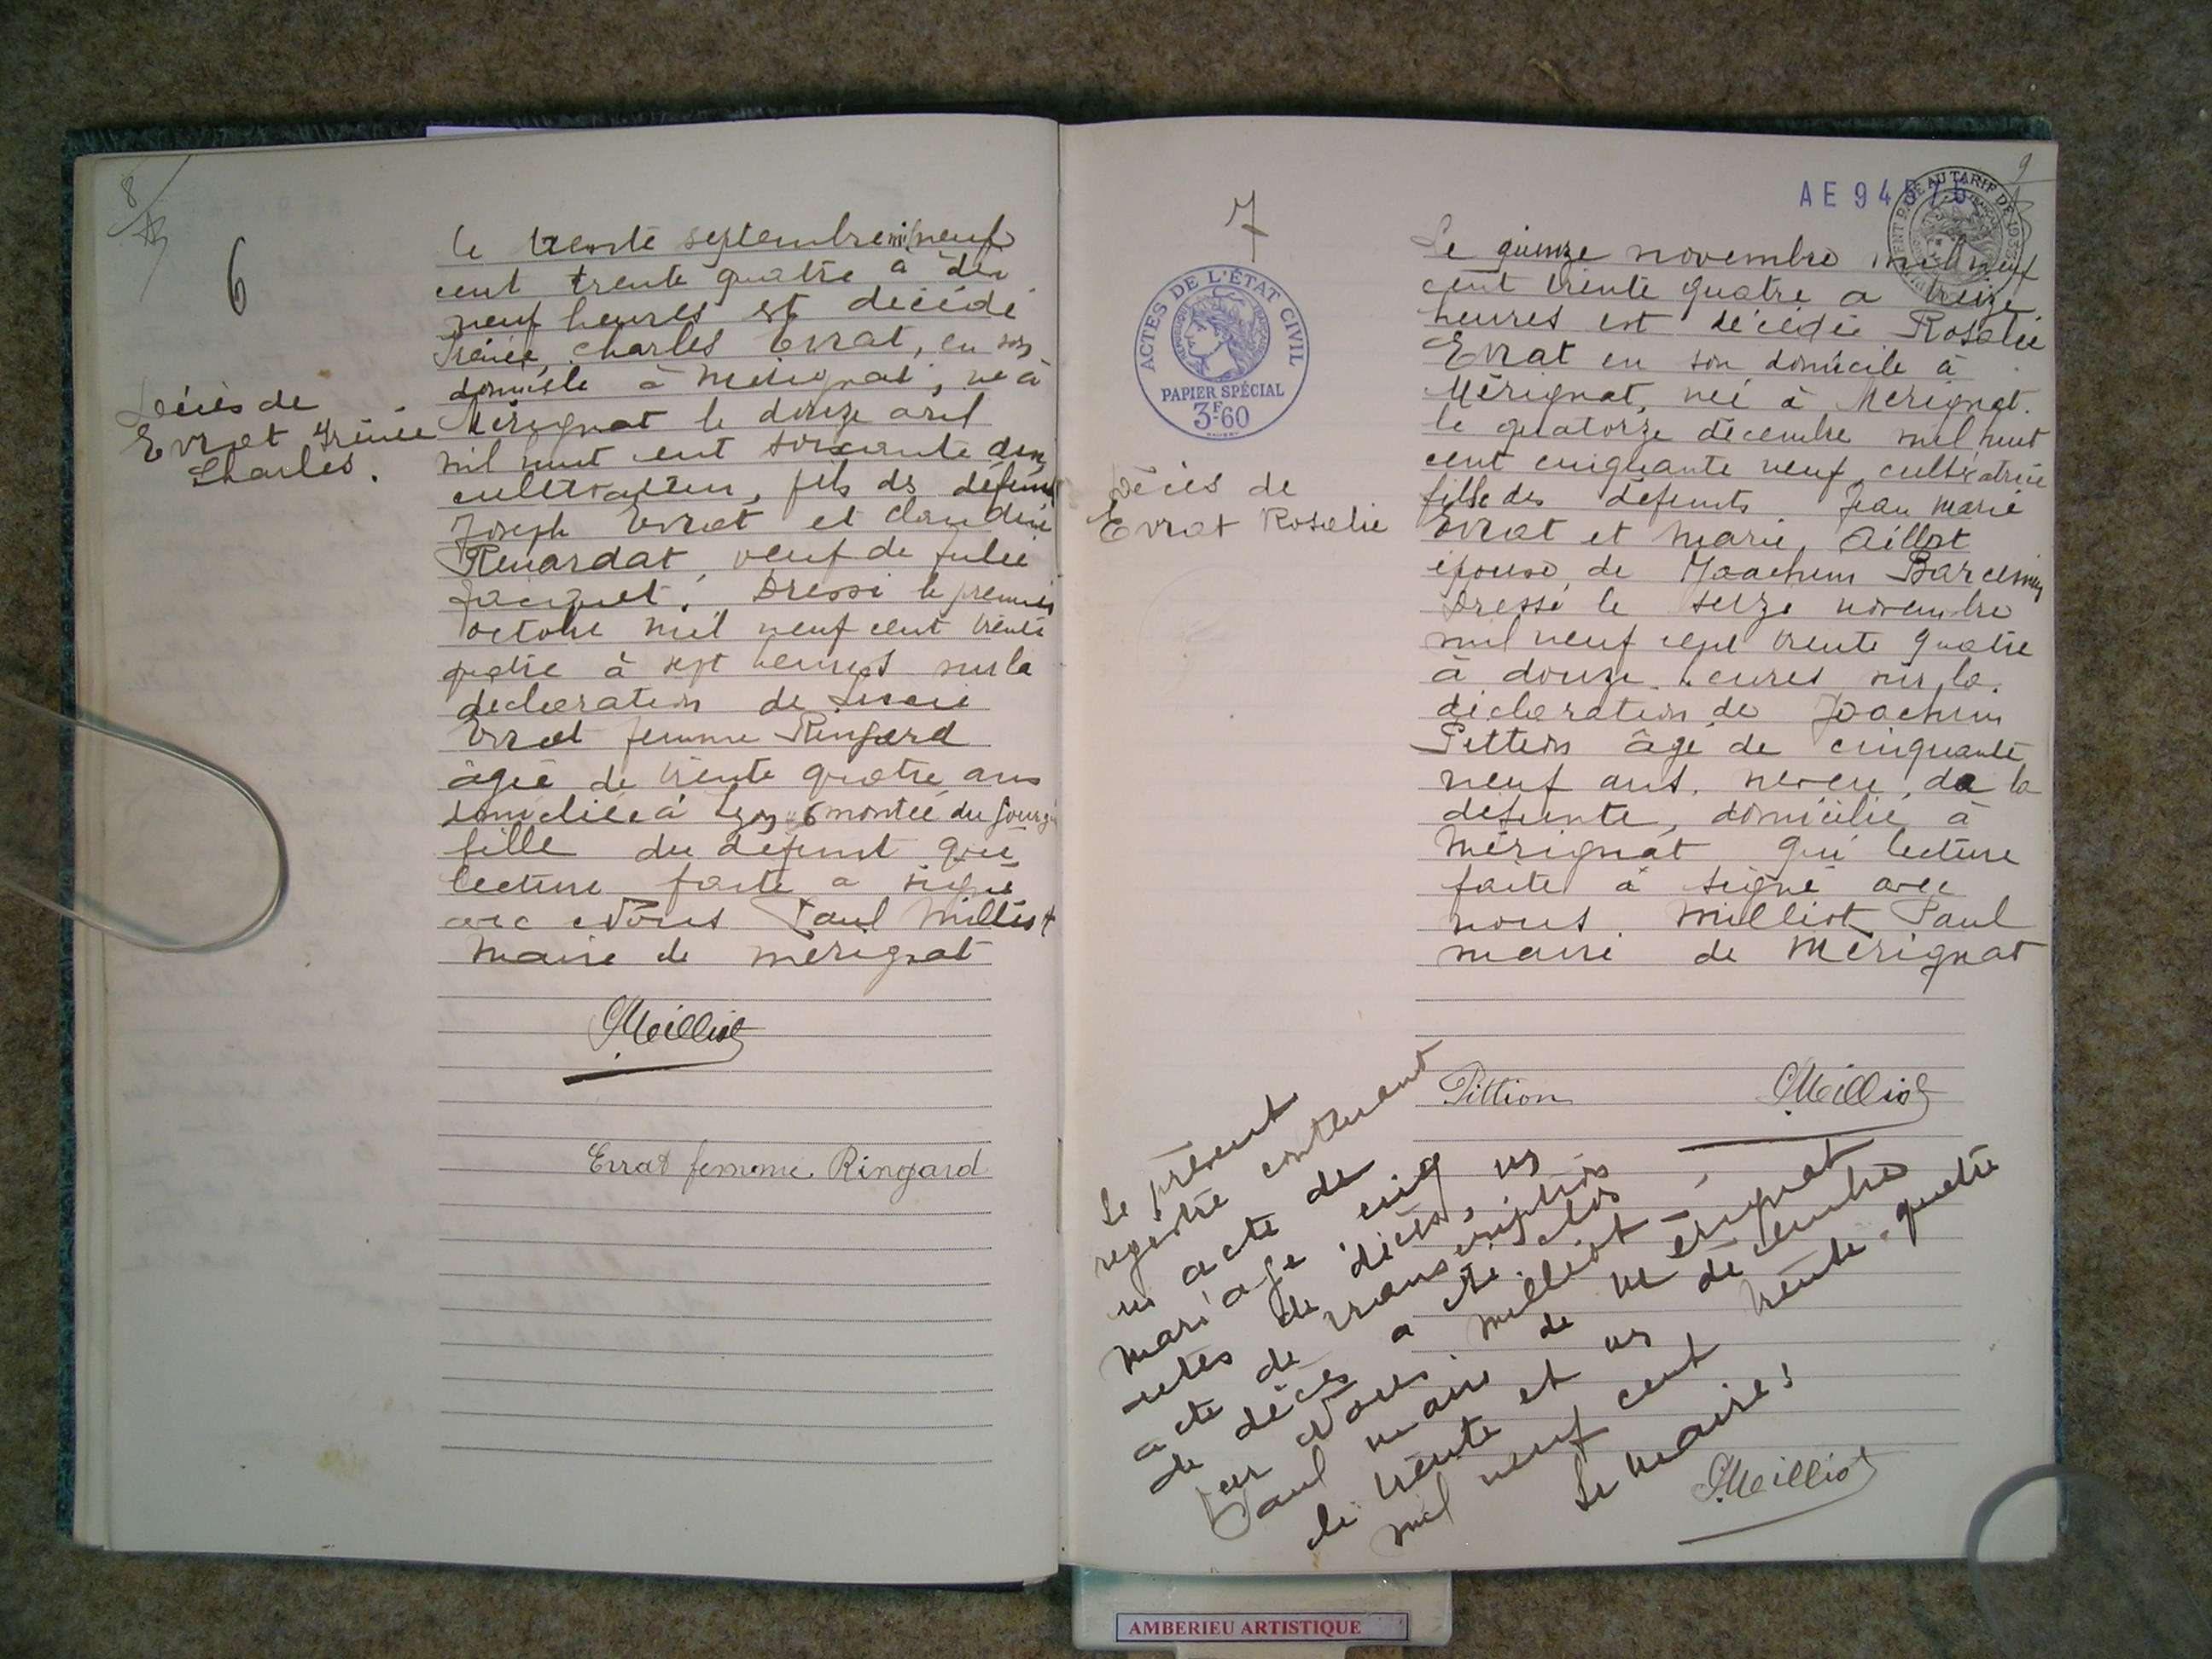 8
6
Décès de
Evrat Irénée
Charles.
Le trente septembre mil neuf
cent trente quatre à dix
neuf heures est décédé
Irénée Charles Evrat, en son
domicile à Mérignat, né à
Mérignat le douze avril
mil huit cent soixante deux
cultivateur, fils de défunts
Joseph Evrat et Claudine
Renardat, veuf de Julie
Jacquet. Dressé le premier
octobre mil neuf cent trente
quatre à sept heures sur la
déclaration de
Evrat femme Ringard
âgée de trente quatre ans
domiciliée à Lyon 6 montée du
fille du défunt qui
lecture faite a signé
avec Nous Paul Milliot
Maire de Mérignat
PMilliot
Evrat femme Ringard
9
AE 94
7
ACTES DE L'ÉTAT CIVIL
RÉPUBLIQUE FRANÇAISE
PAPIER SPÉCIAL
3F60
Décès de
Evrat Rosalie
Le quinze novembre mil neuf
cent trente quatre a treize
heures est décédée Rosalie
Evrat en son domicile à
Mérignat, née à Mérignat.
le quatorze décembre mil huit
cent cinquante neuf cultivatrice
fille des défunts Jean Marie
Evrat et Marie Aillot
épouse de Joachim
Dressé le seize novembre
mil neuf cent trente quatre
à douze heures sur la
déclaration de Joachim
Pittion âgé de cinquante
neuf ans, neveu de la
défunte, domicilié à
Mérignat qui lecture
faite à signé avec
nous Milliot Paul
maire de Mérignat
Pittion PMilliot
Le présent
registre contenant
un acte de
mariage cinq
actes de décès, un
acte de transcription
de décès a été clos
par Nous Milliot
Paul maire de Mérignat
le trente et un décembre
mil neuf cent trente-quatre
Le Maire:
PMilliot
AMBERIEU ARTISTIQUE